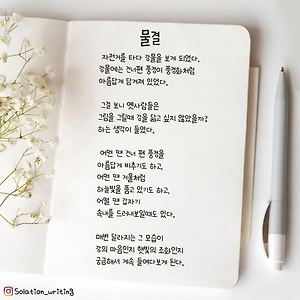 물결
자전거를 타다 강물을 보게 되었다.
강물에는 건너편 풍경이 풍경화처럼
아름답게 담겨져 있었다.
그걸 보니 옛사람들은
그림을 그릴때 강을 닮고 싶지 않았을까?
하는 생각이 들었다.
어떤 땐 건너 편 풍경을
아름답게 비추기도 하고,
어떤 땐 거울처럼
하늘빛을 품고 있기도 하고,
어떨 땐 갑자기
속내를 드러내보일때도 있다.
매번 달라지는 그 모습이
강의 마음인지 햇빛의 조화인지
궁금해서 계속 들여다보게 된다.
@Solation_writing